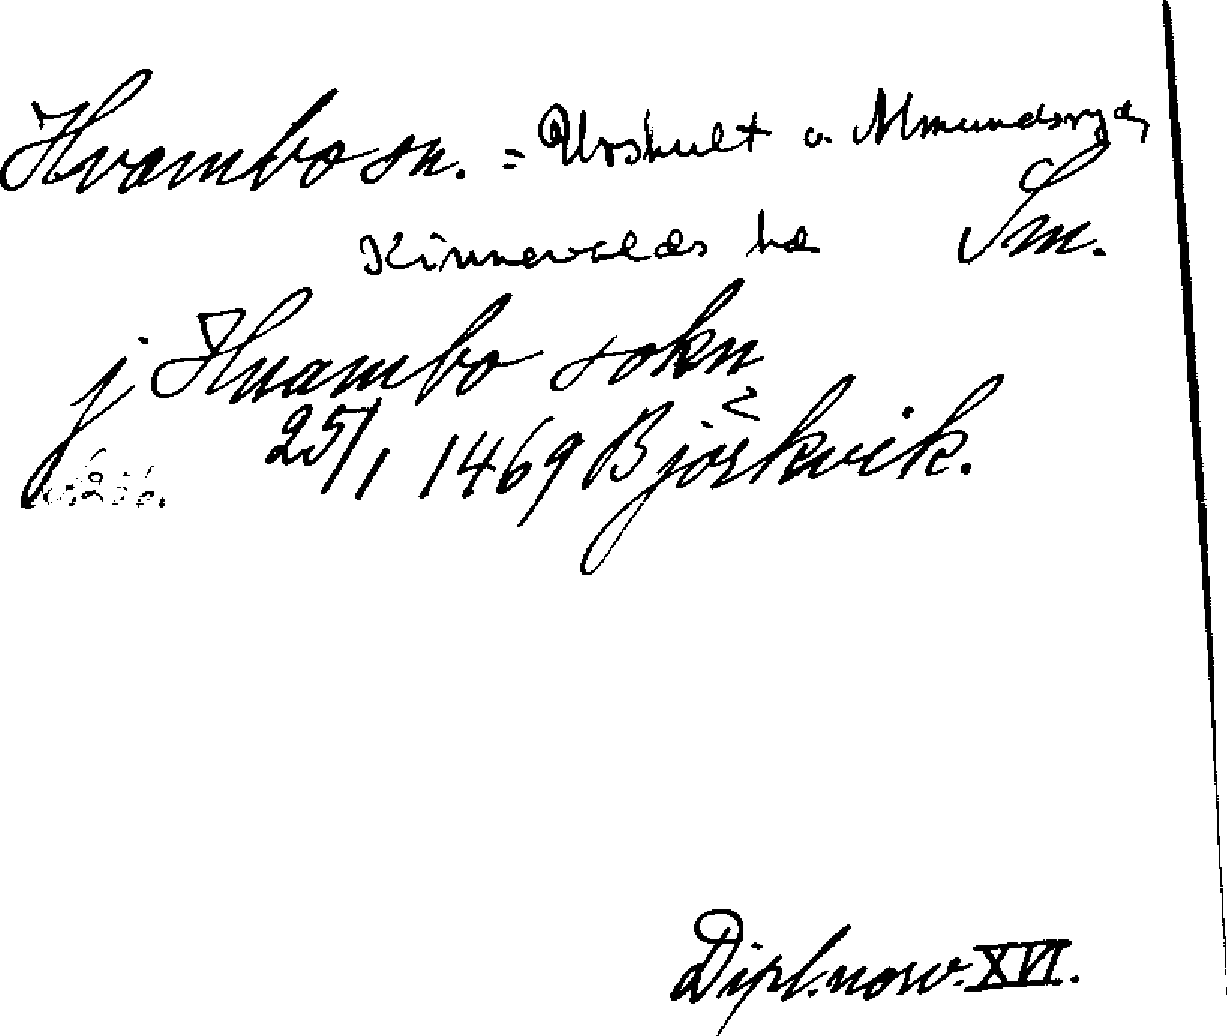 Hvambo sn. = Urshult o. Almundsryd,
Kinnevalds hd Sm.
j Hvambo sokn
25/1 1469 Björkvik.
Dipl. norv. XVI.